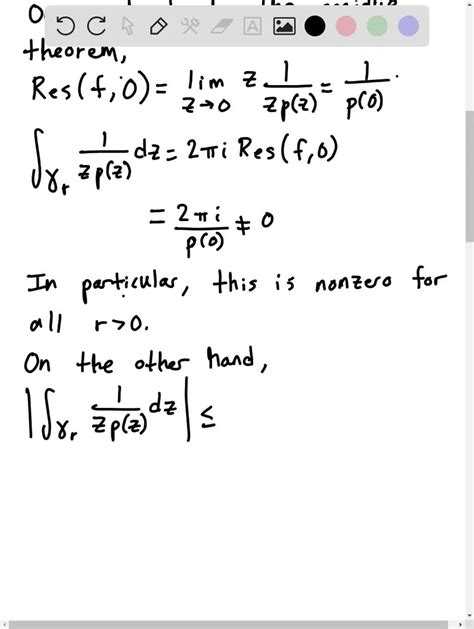 theorem,
Res(f,0) = lim z→0 z 1/(zp(z)) = 1/p(0).
∫γr 1/(zp(z)) dz = 2πi Res(f,0)
= 2πi/p(0) ≠ 0
In particular, this is nonzero for
all r>0.
On the other hand,
|∫γr 1/(zp(z)) dz| ≤